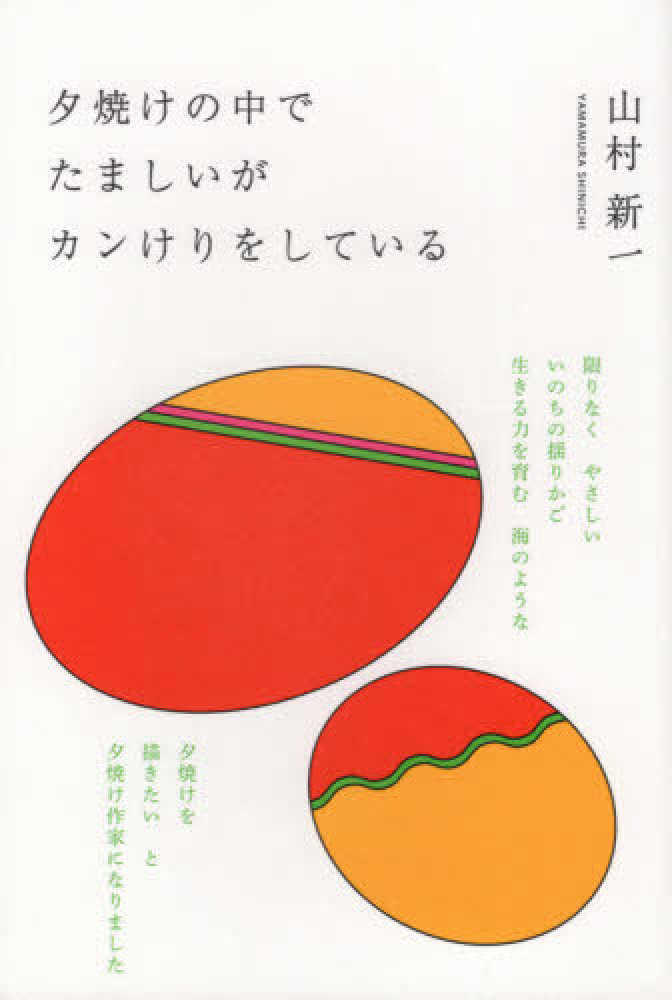 夕焼けの中で
たましいが
カンけりをしている
山村 新一
YAMAMURA SHINICHI
限りなく やさしい
いのちの揺りかご
生きる力を育む 海のような
夕焼けを
描きたい と
夕焼け作家になりました